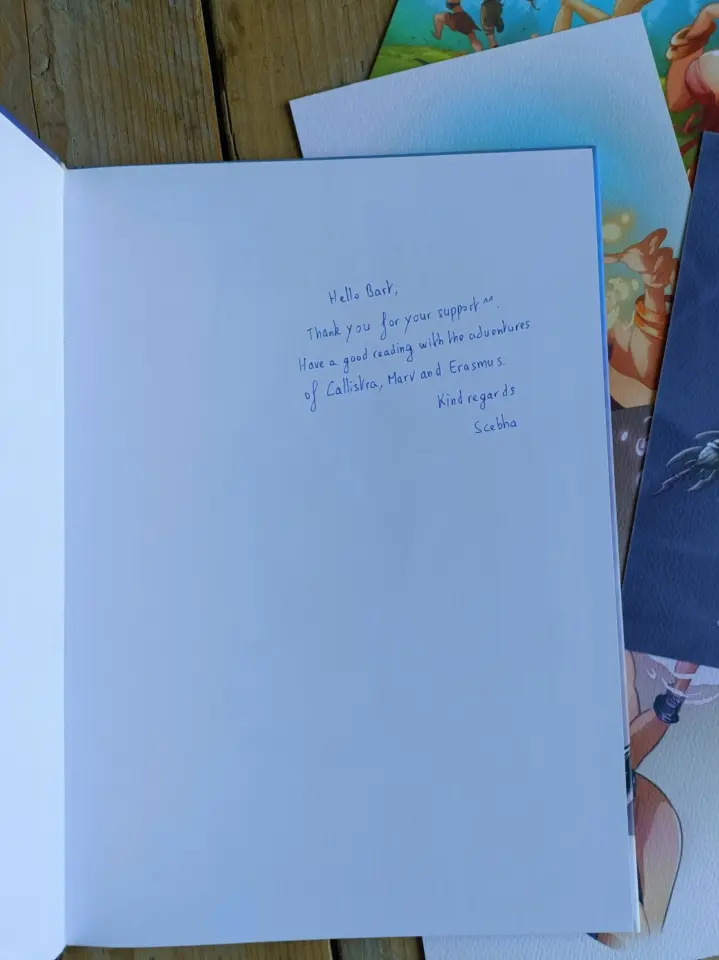 Hello Bart,
Thank you for your support ^^.
Have a good reading with the adventures
of Callistra, Marv and Erasmus.
Kind regards
Scebha